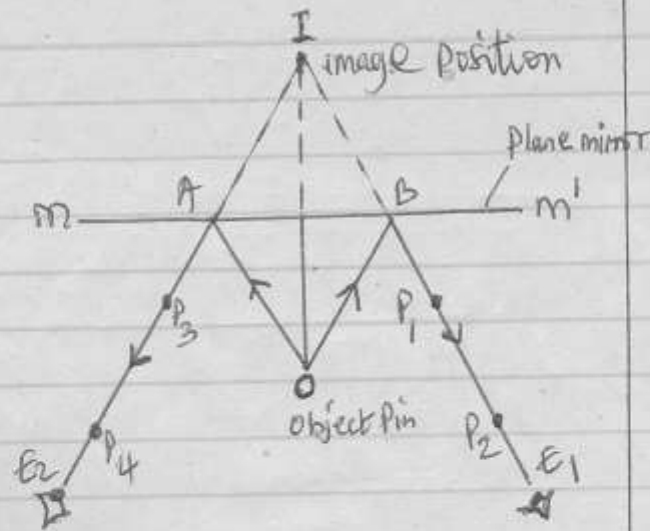 I
image position
plane mirror
m A B m'
P3 P1
O
object pin
P4 P2
E2 E1